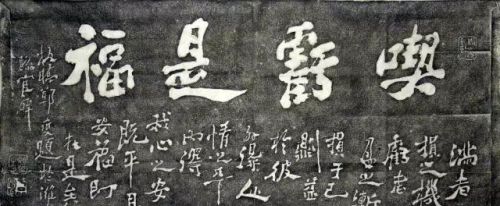 喫虧是福
滿者
損之機
虧者
盈之漸
損于己
則益
於彼
外得人
情之平
內得
我心之安
既平且
安福即
在是矣
板橋鄭燮題於濰
縣官齋